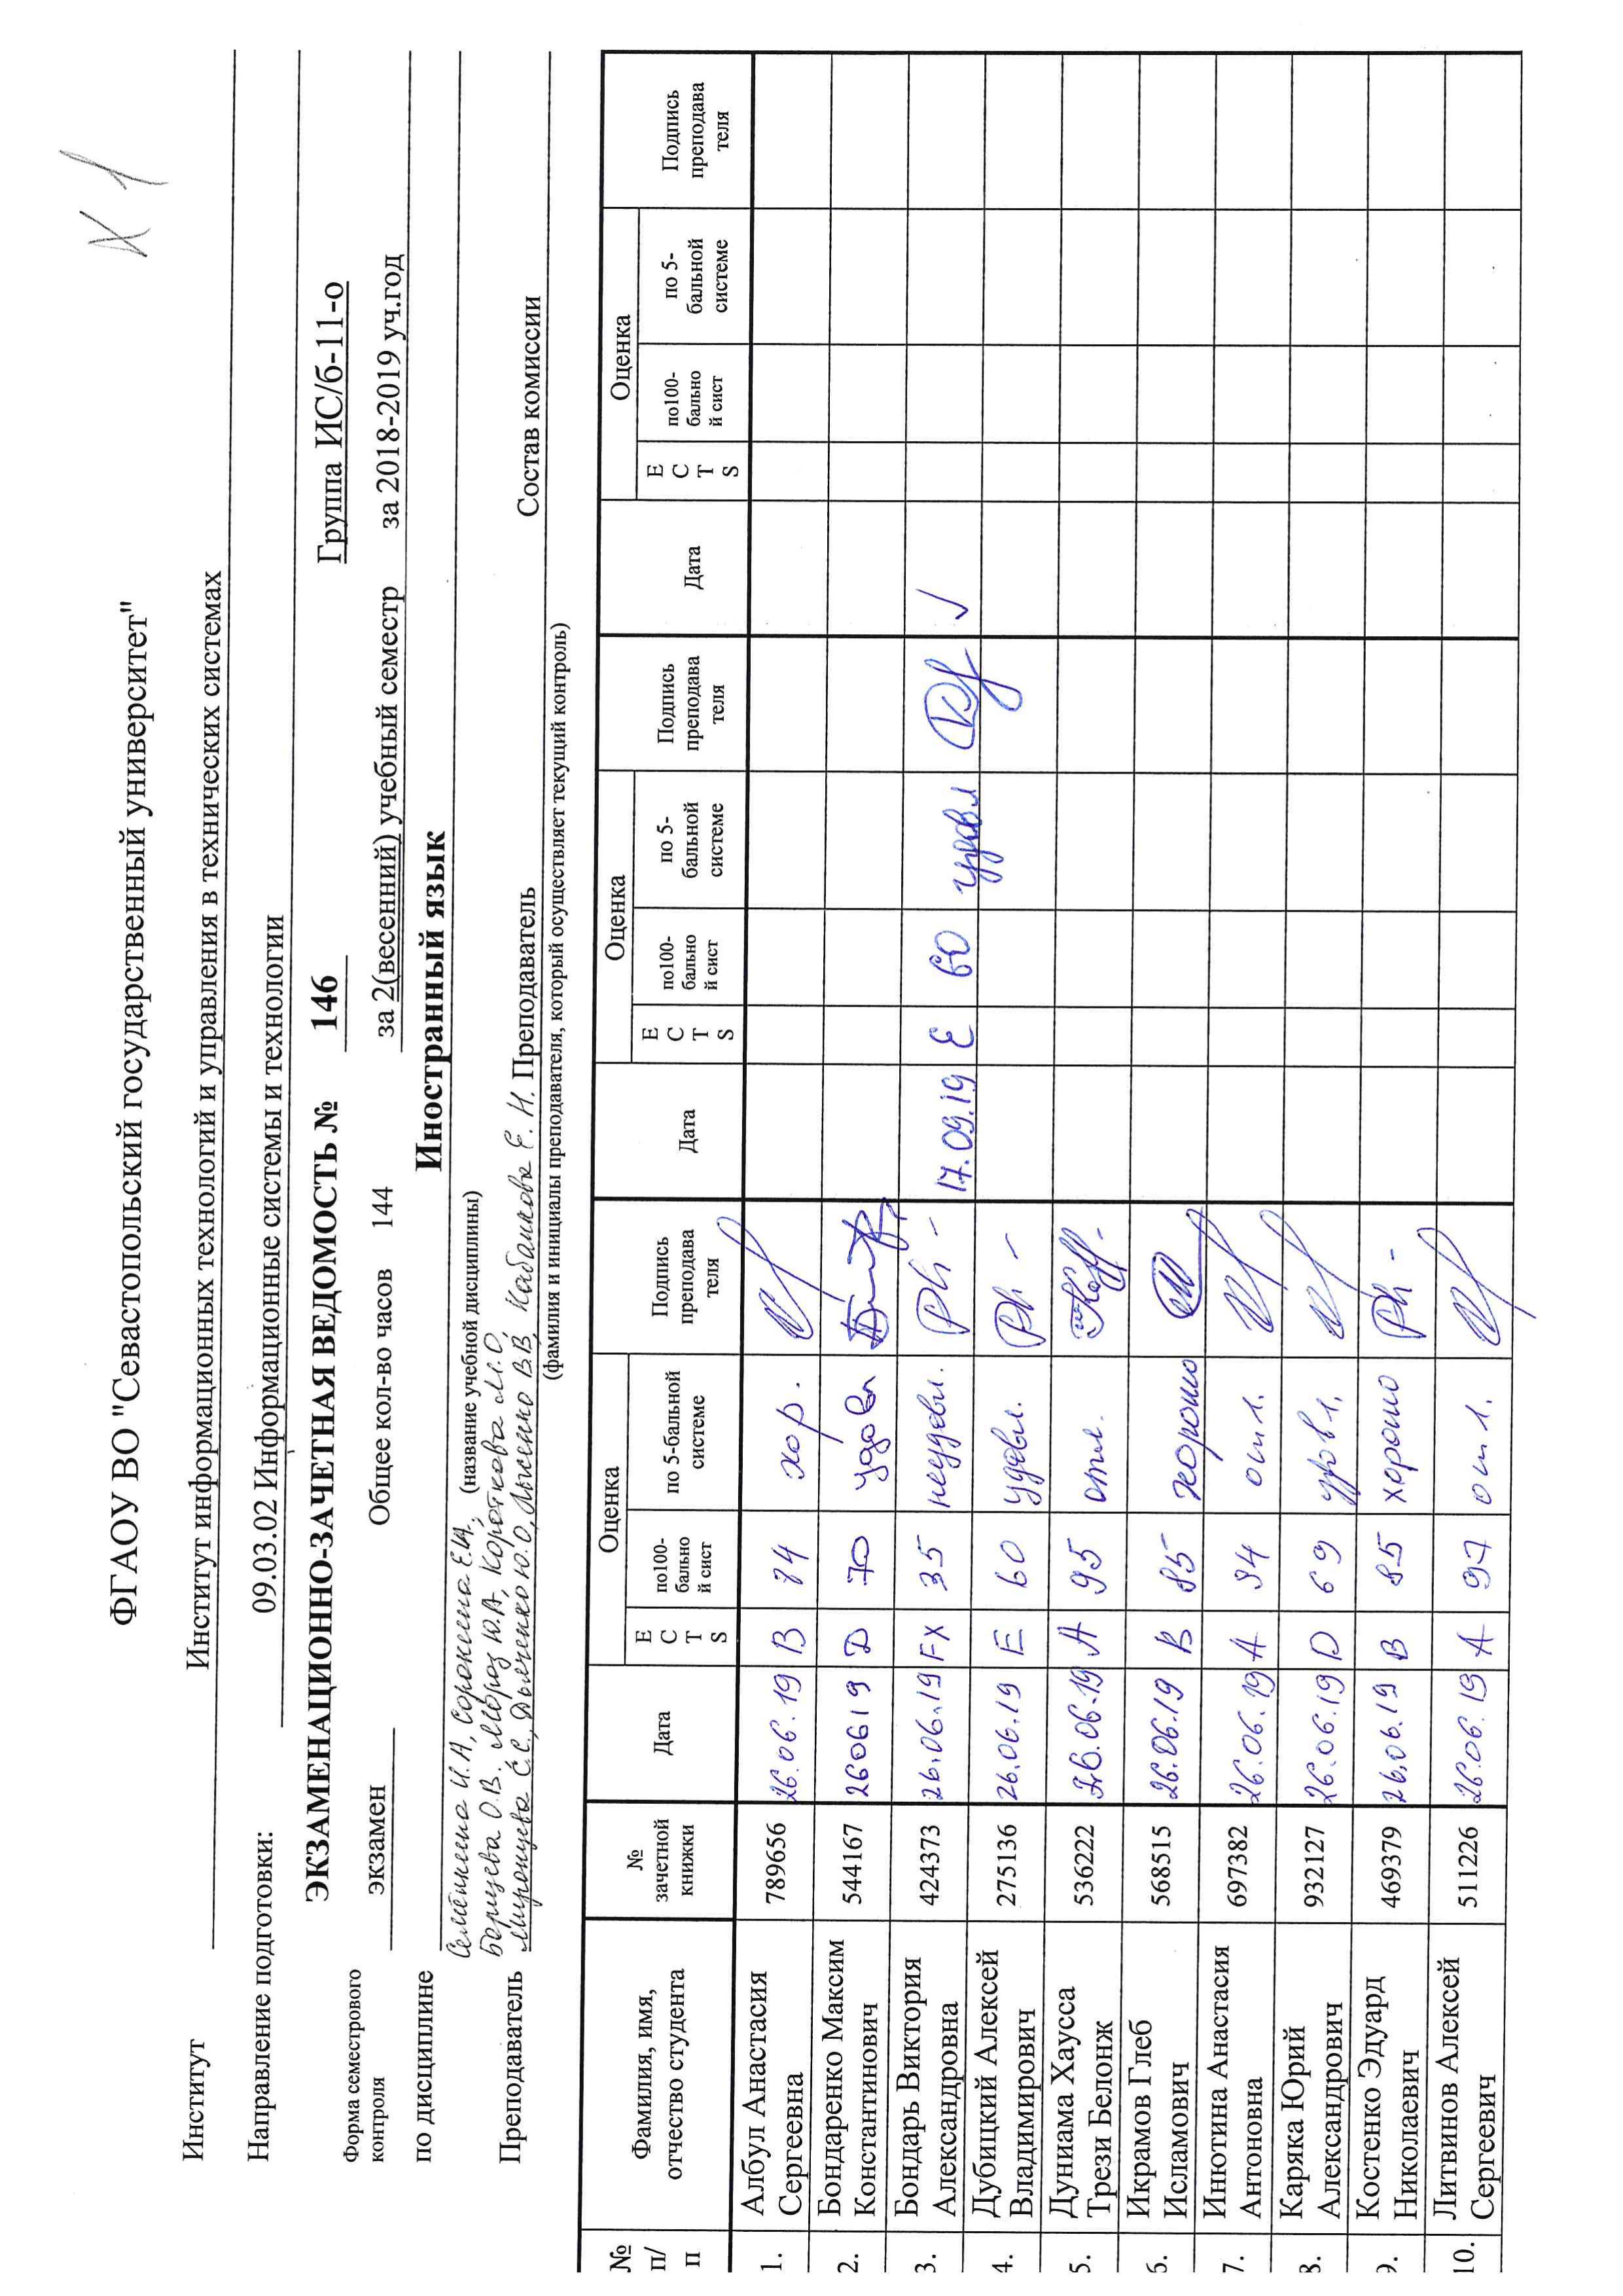 X 1
ФГАОУ ВО "Севастопольский государственный университет"
Институт Институт информационных технологий и управления в технических системах
Направление подготовки: 09.03.02 Информационные системы и технологии
ЭКЗАМЕНАЦИОННО-ЗАЧЕТНАЯ ВЕДОМОСТЬ № 146 Группа ИС/б-11-о
Форма семестрового
контроля экзамен Общее кол-во часов 144 за 2(весенний) учебный семестр за 2018-2019 уч.год
по дисциплине Иностранный язык
Семёнкина И.А, Сорокина Е.И., (название учебной дисциплины)
Борщева О.В. Мороз Ю.А, Короткова М.О,
Преподаватель Миронцева С.С., Дьяченко Ю.О, Лысенко В.В, Кабанкова Е.Н. Преподаватель Состав комиссии
(фамилия и инициалы преподавателя, который осуществляет текущий контроль)
№ п/п Фамилия, имя, отчество студента № зачетной книжки Дата Оценка ECTS по100-бально й сист по 5-бальной системе Подпись преподава теля Дата Оценка ECTS по100-бально й сист по 5-бальной системе Подпись преподава теля Дата Оценка ECTS по100-бально й сист по 5-бальной системе Подпись преподава теля
1. Албул Анастасия
Сергеевна 789656 26.06.19 B 84 хор.
2. Бондаренко Максим
Константинович 544167 260619 D 70 удовл
3. Бондарь Виктория
Александровна 424373 26.06.19 FX 35 неудовл. 17.09.19 E 60 удовл
4. Дубицкий Алексей
Владимирович 275136 26.06.19 E 60 удовл.
5. Дуниама Хаусса
Трези Белонж 536222 26.06.19 A 95 отл.
6. Икрамов Глеб
Исламович 568515 26.06.19 B 85 хорошо
7. Инютина Анастасия
Антоновна 697382 26.06.19 A 94 отл.
8. Каряка Юрий
Александрович 932127 26.06.19 D 69 удовл.
9. Костенко Эдуард
Николаевич 469379 26.06.19 B 85 хорошо
10. Литвинов Алексей
Сергеевич 511226 26.06.19 A 97 отл.